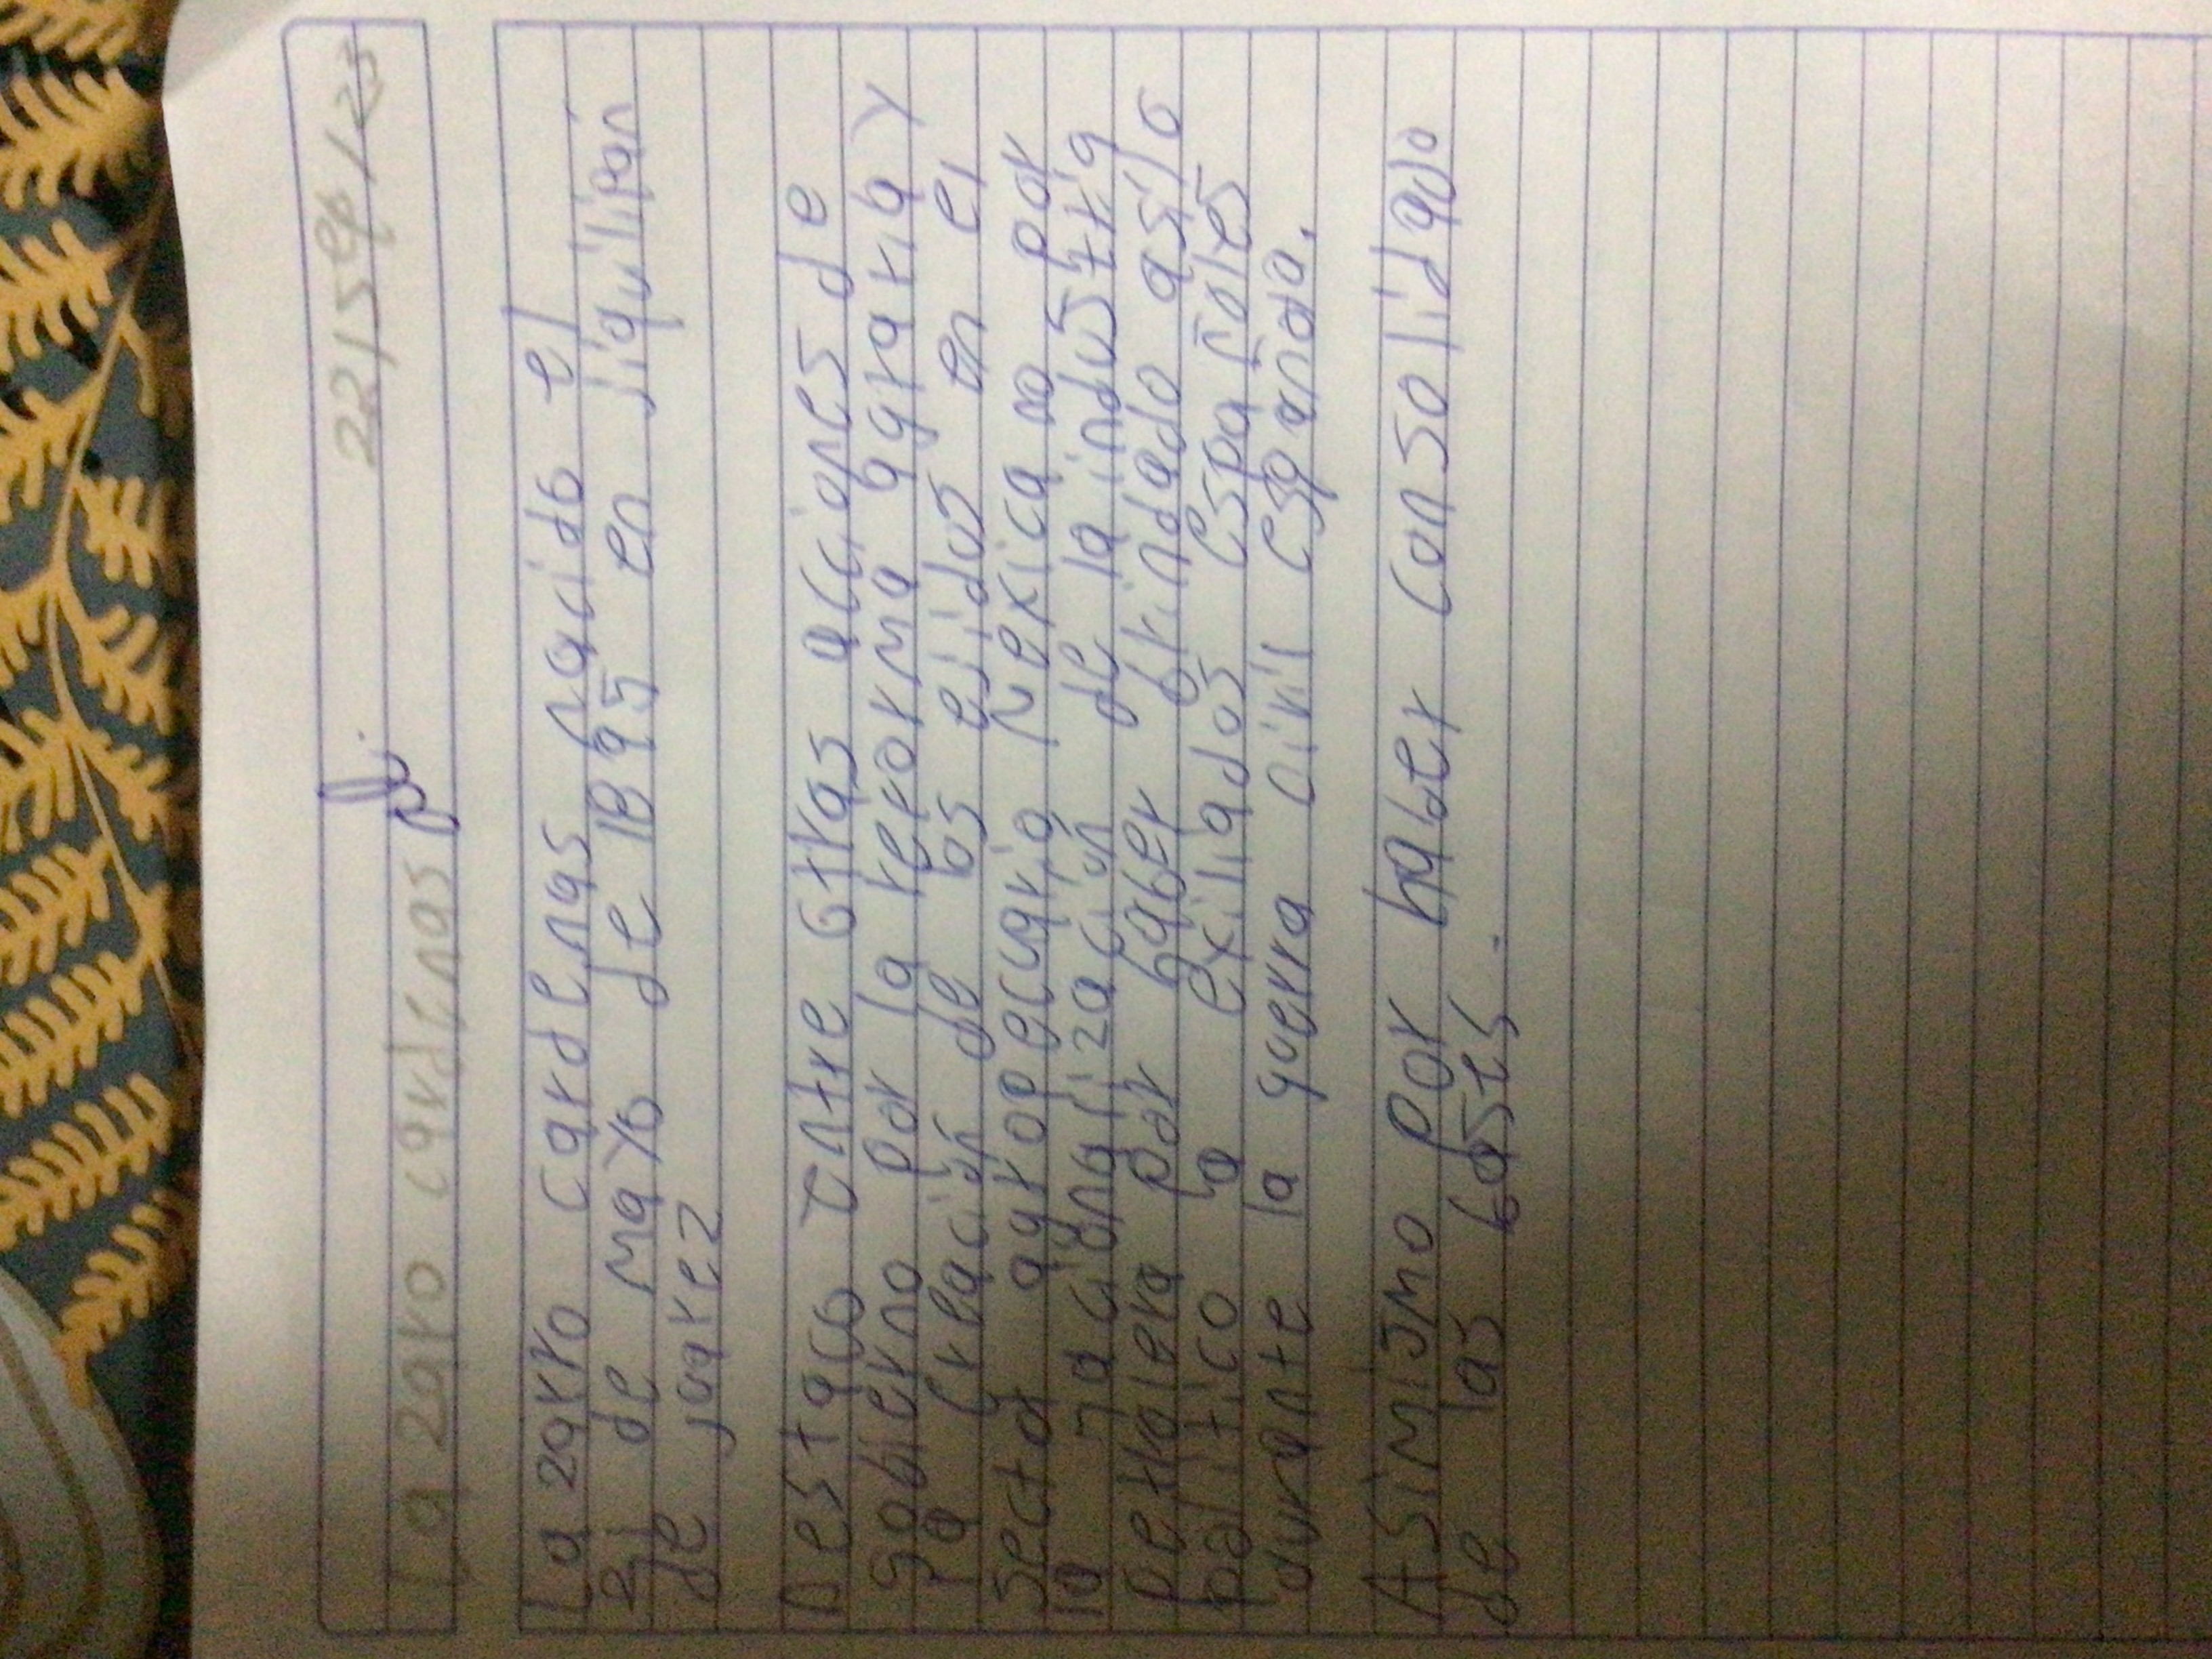 22/sep/23
Lazaro cardenas
Lazarro cardenas nacido el
21 de mayo de 1895 en jiquilipan
de juarez
Destaco entre otras acciones de
gobierno por la reforma agraria y
la creación de los ejidos en el
sector agropecuario Mexicano por
la nacionalización de la industria
petrolera por haber brindado asilo
político a exiliados españoles
durante la guerra civil española.
Asimismo por haber consolidado
de las bases.